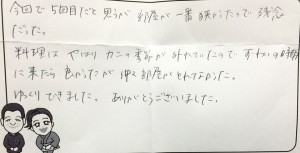 今回で5回目だと思うが部屋が一番狭かったので残念
だった。
料理はやはりカニの季節が外れていたのでずわいの時期
に来たら良かったが中々部屋がとれなかった。
ゆっくりできました。ありがとうございました。